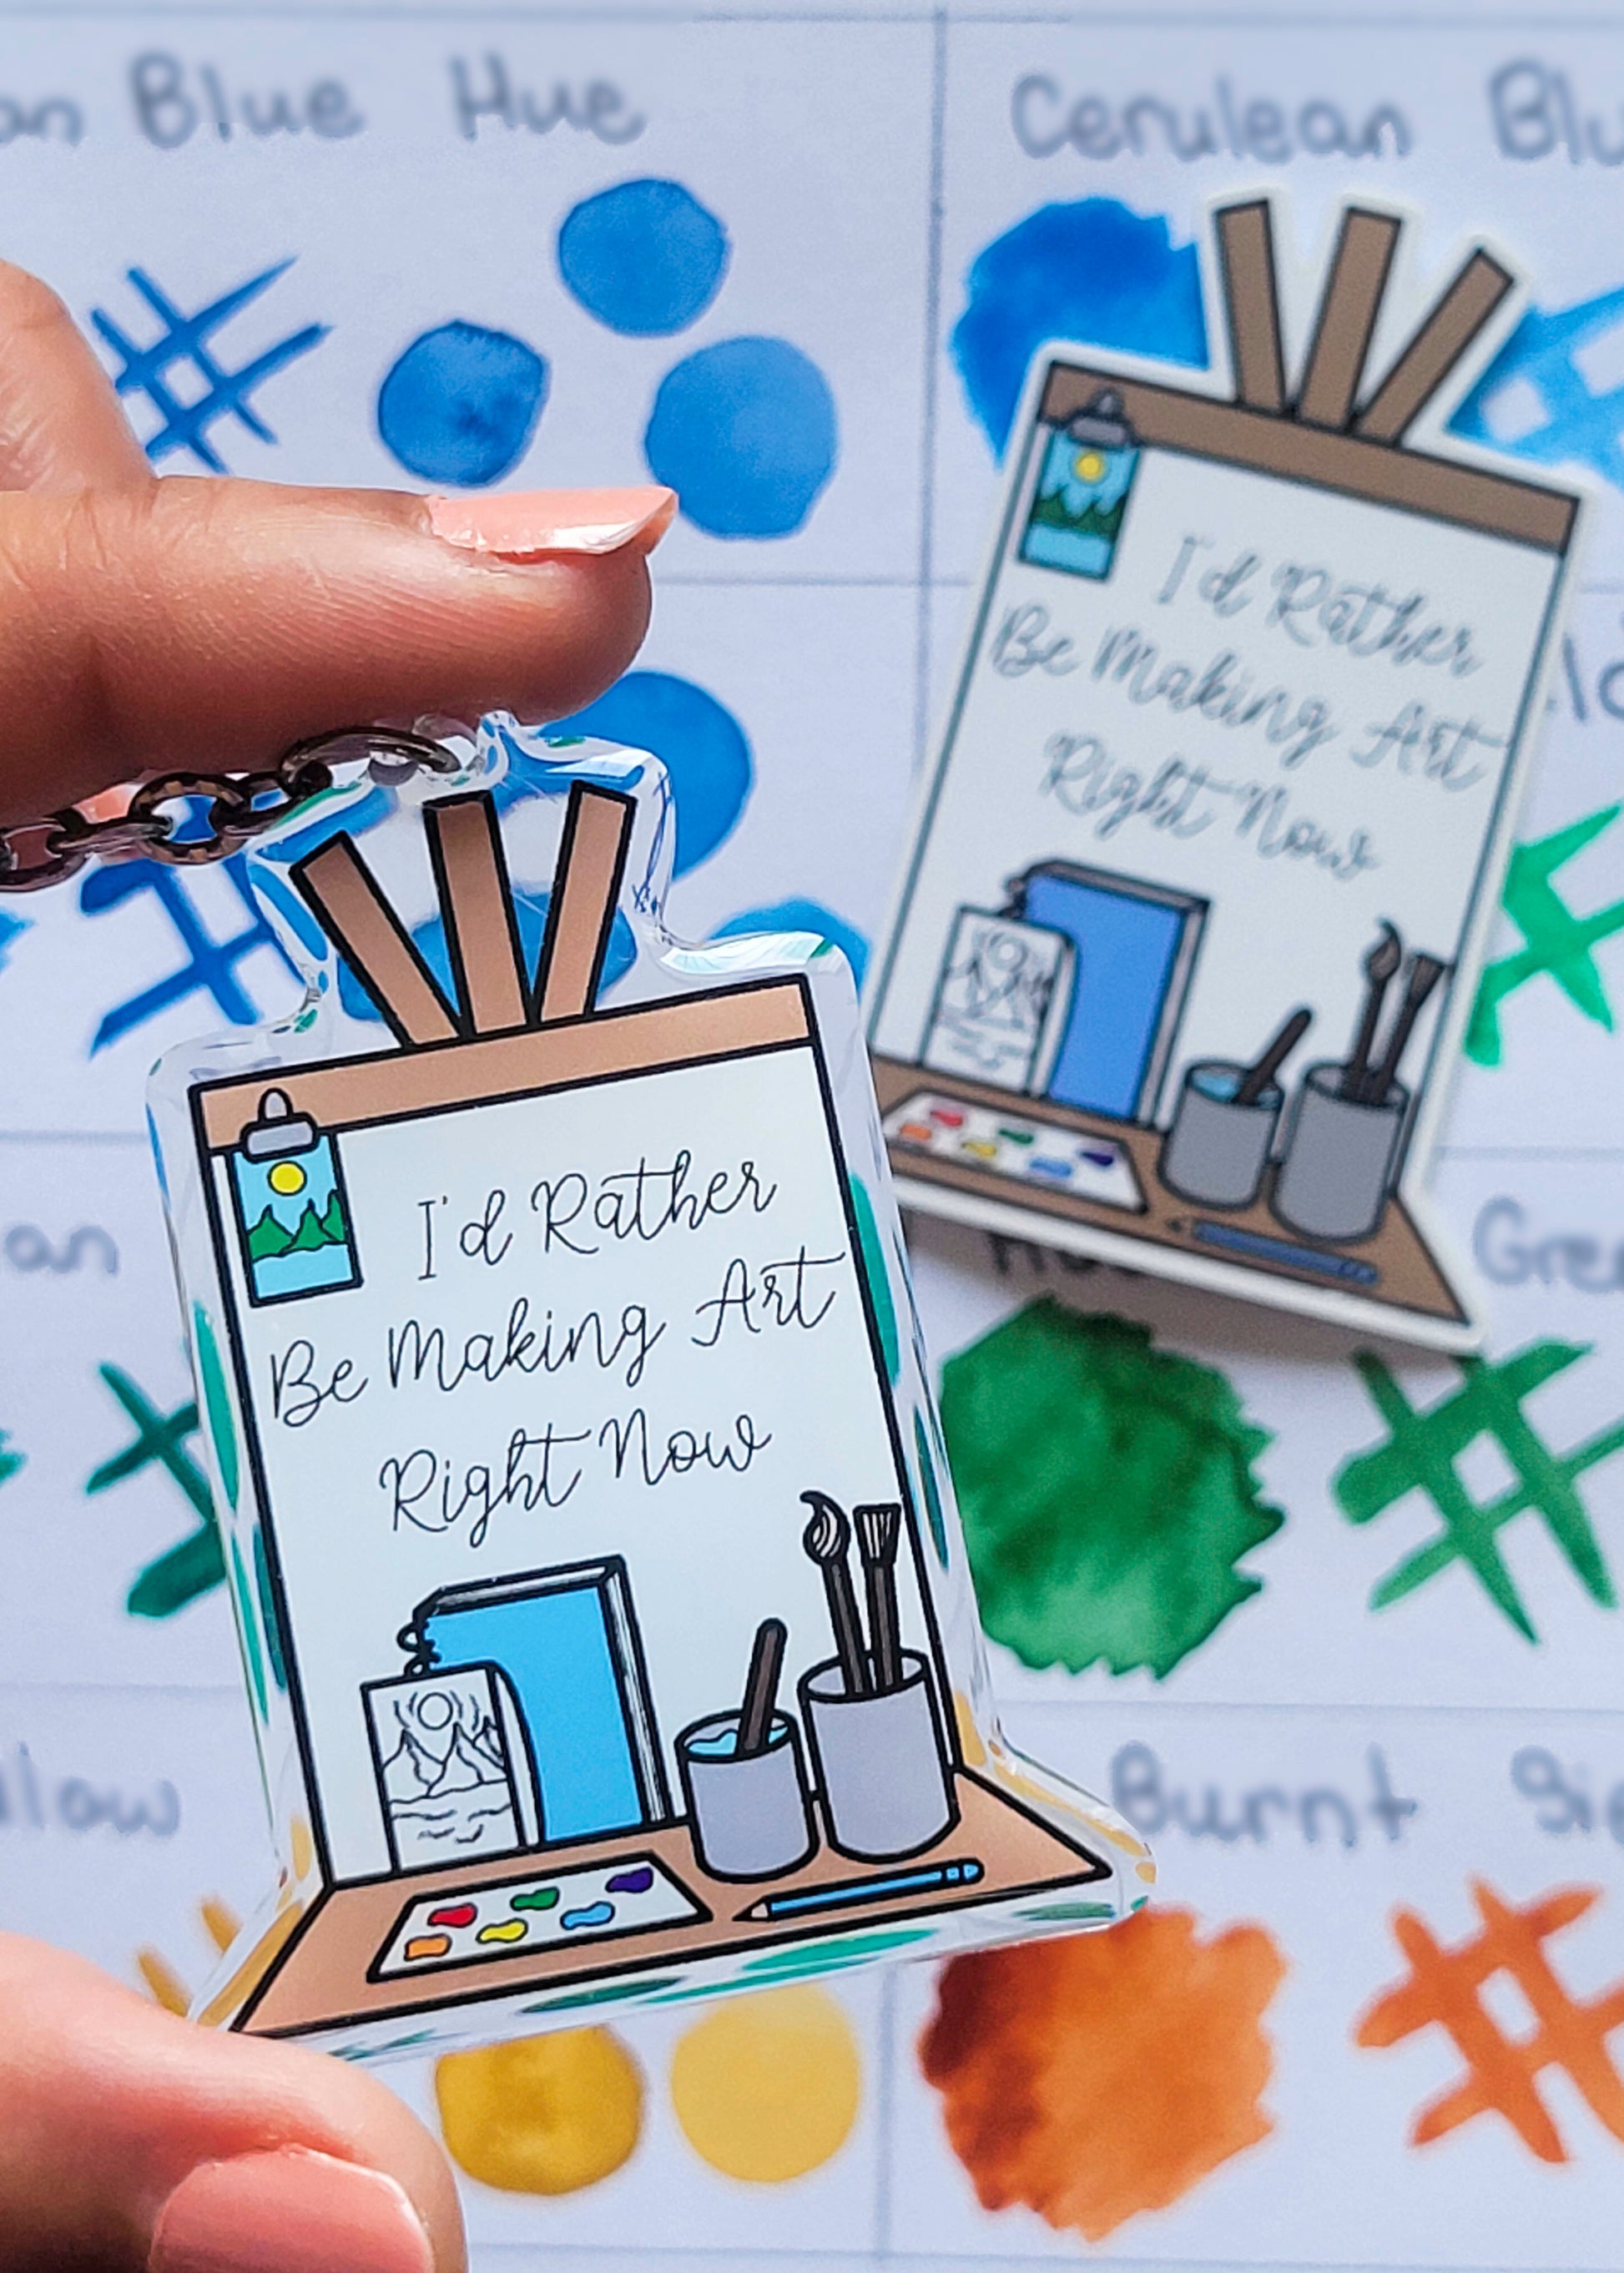 an Blue Hue
Cerulean Blu
I'd Rather
Be Making Art
Right Now
I'd Rather
Be Making Art
Right Now
an
Gree
llow
Burnt Si